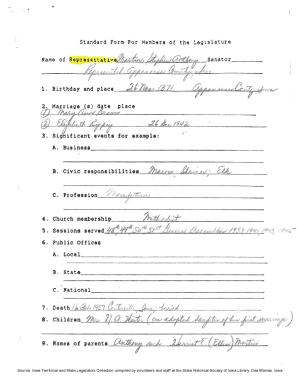 Standard Form For Members of the Legislature
Name of Representative Martin, Stephen Anthony Senator
Represented Appanoose County, Iowa
1. Birthday and place 26 Mar 1871 Appanoose County Iowa
2. Marriage (s) date place
① Mary Ann
② Elizabeth 26 1942
3. Significant events for example:
A. Business
B. Civic responsibilities Mason; Shriner; Elk
C. Profession
4. Church membership Methodist
5. Sessions served 48th 49th 50th 51st General Assemblies 1939, 1941, 1943, 1945
6. Public Offices
A. Local
B. State
C. National
7. Death 1957 Centerville, Iowa; buried
8. Children Mrs. (an adopted daughter of his first marriage)
9. Names of parents Anthony and Harriet E (Elkins) Martin
Source: Iowa Territorial and State Legislators Collection compiled by volunteers and staff at the State Historical Society of Iowa Library, Des Moines, Iowa.